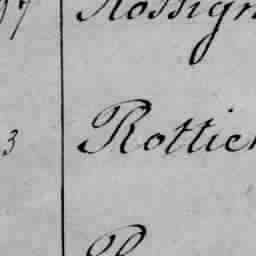 97 Rossign
3 Rottier